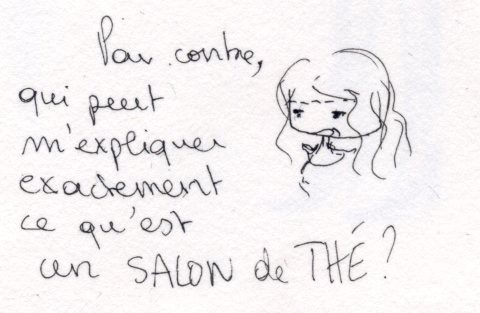 Par contre,
qui peut
m'expliquer
exactement
ce qu'est
un SALON de THÉ ?